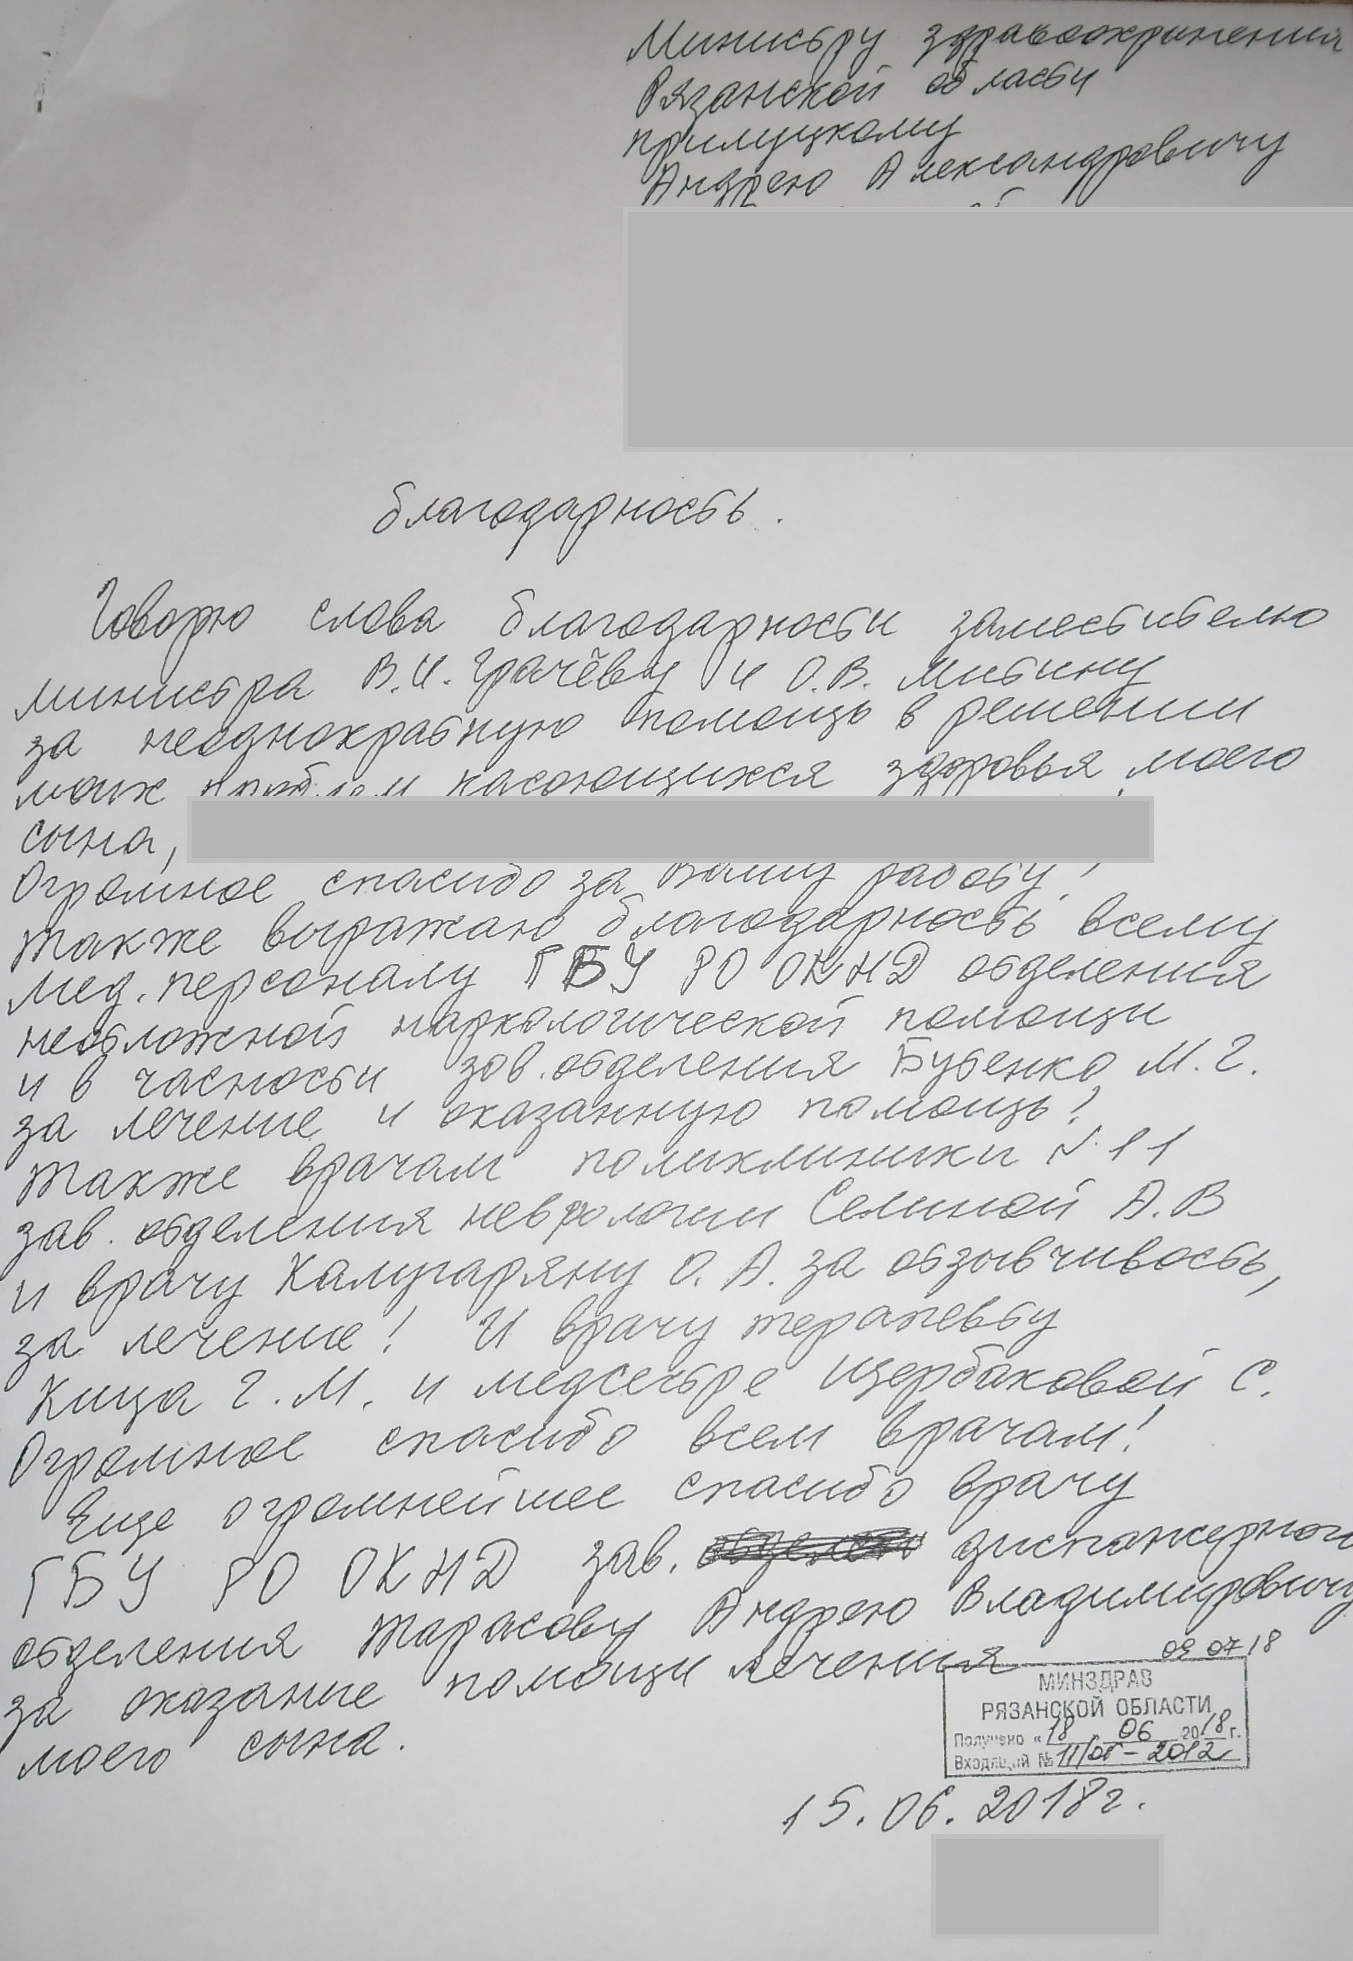 Министру здравоохранения
Рязанской области
Прилуцкому
Андрею Александровичу
Благодарность.
Говорю слова благодарности заместителю
министра В.И. Грачёву и О.В. Митину
за неоднократную помощь в решении
моих проблем касающихся здоровья моего
сына,
Огромное спасибо за Вашу работу!
Также выражаю благодарность всему
мед. персоналу ГБУ РО ОКНД отделения
неотложной наркологической помощи
и в часности зав. отделения Бутенко М.Г.
за лечение и оказанную помощь!
Также врачам поликлиники №11
зав. отделения неврологии Селиной А.В
и врачу Калугаряну О.А. за отзывчивость,
за лечение! И врачу терапевту
Кица Г.М. и медсестре Щербаковой С.
Огромное спасибо всем врачам!
Еще огромнейшее спасибо врачу
ГБУ РО ОКНД зав. диспансерного
отделения Тарасову Андрею Владимировичу
за оказание помощи лечения
моего сына.
09 07 18
МИНЗДРАВ
РЯЗАНСКОЙ ОБЛАСТИ
Получено «18 06 2018 г.
Входящий № 11/от-2012
15.06.2018г.